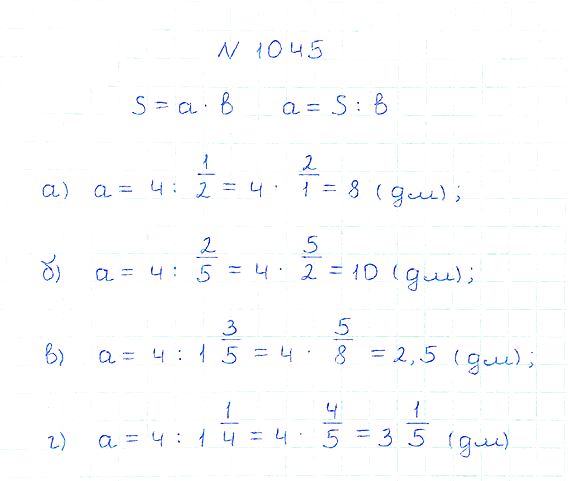 N 1045
S = a · b a = S : b
а) a = 4 : 1/2 = 4 · 2/1 = 8 (дм);
б) a = 4 : 2/5 = 4 · 5/2 = 10 (дм);
в) a = 4 : 1 3/5 = 4 · 5/8 = 2,5 (дм);
г) a = 4 : 1 1/4 = 4 · 4/5 = 3 1/5 (дм)